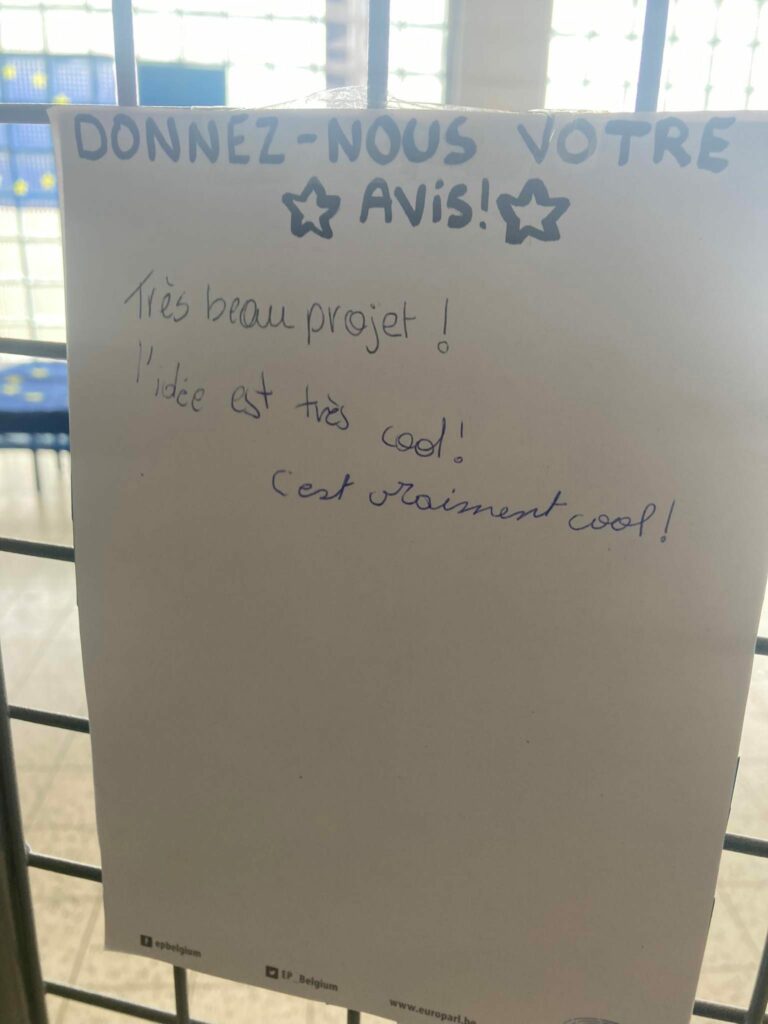 DONNEZ-NOUS VOTRE
AVIS!
Très beau projet !
l'idée est très cool!
C'est vraiment cool!
epbelgium
EP_Belgium
www.europarl.be